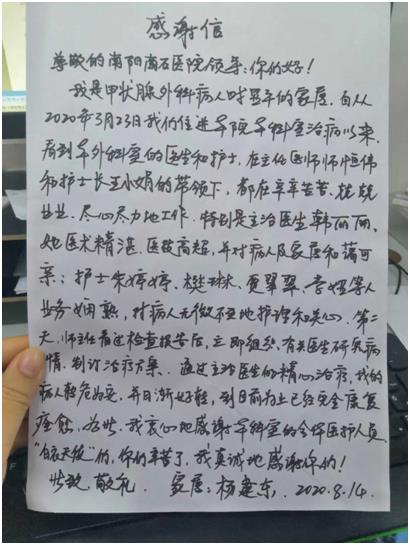 感谢信
尊敬的南阳南石医院领导：你们好！
我是甲状腺外科病人时显華的家属，自从
2020年3月23日我们住进本院本科室治病以来，
看到本外科室的医生和护士，在主任医师师恒伟
和护士长王小娟的带领下，都在辛辛苦苦、兢兢
业业、尽心尽力地工作。特别是主治医生韩丽丽，
她医术精湛、医技高超，并对病人及家属和蔼可
亲；护士朱婷婷、樊琳、贾翠翠、李妞等人
业务娴熟，对病人无微不至地护理和关心。第二
天，师主任看过检查报告后，立即组织有关医生研究病
情，制订治疗方案。通过主治医生的精心治疗，我的
病人转危为安，并日渐好转，到目前为止已经完全康复
痊愈，为此，我衷心地感谢本科室的全体医护人员，
“白衣天使”的，你们辛苦了，我真诚地感谢你们！
此致 敬礼 家属：杨建东，2020.8.14.